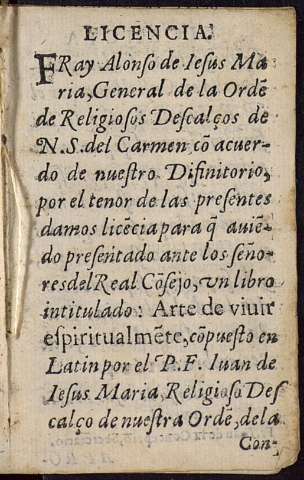 LICENCIA.
FRay Alonso de Iesus Ma
ria, General de la Ordẽ
de Religiosos Descalços de
N.S. del Carmen cõ acuer-
do de nuestro Difinitorio,
por el tenor de las presentes
damos licẽcia para q̃ auiẽ-
do presentado ante los seño-
res del Real Cõsejo, vn libro
intitulado: Arte de viuir
espiritualmẽte, cõpuesto en
Latin por el P.F. Iuan de
Iesus Maria, Religioso Des
calço de nuestra Ordẽ, de la
Con-